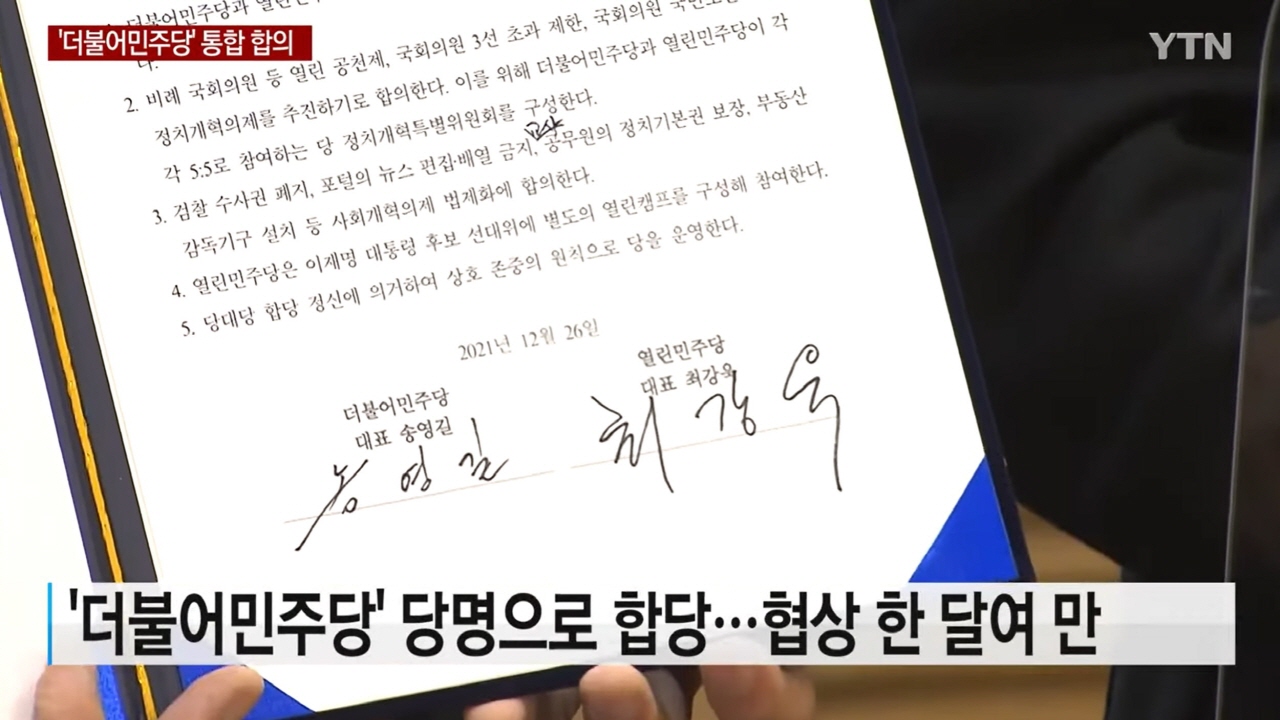 '더불어민주당' 통합 합의
YTN
더불어민주당과
다.
2. 비례 국회의원 등 열린 공천제, 국회의원 3선 초과 제한, 국회의원
정치개혁의제를 추진하기로 합의한다. 이를 위해 더불어민주당과 열린민주당이 각
각 5:5로 참여하는 당 정치개혁특별위원회를 구성한다.
3. 검찰 수사권 폐지, 포털의 뉴스 편집·배열 금지, 공무원의 정치기본권 보장, 부동산
감독기구 설치 등 사회개혁의제 법제화에 합의한다.
4. 열린민주당은 이재명 대통령 후보 선대위에 별도의 열린캠프를 구성해 참여한다.
5. 당대당 합당 정신에 의거하여 상호 존중의 원칙으로 당을 운영한다.
2021년 12월 26일
더불어민주당
대표 송영길
송영길
열린민주당
대표 최강욱
최강욱
'더불어민주당' 당명으로 합당…협상 한 달여 만